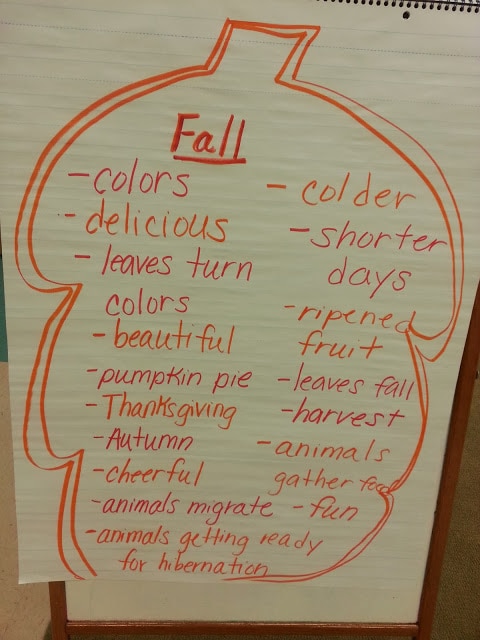 Fall
- colors
- delicious
- leaves turn
colors
- beautiful
- pumpkin pie
- Thanksgiving
- Autumn
- cheerful
- animals migrate
- animals getting ready
for hibernation
- colder
- shorter
days
- ripened
fruit
- leaves fall
- harvest
- animals
gather food
- fun